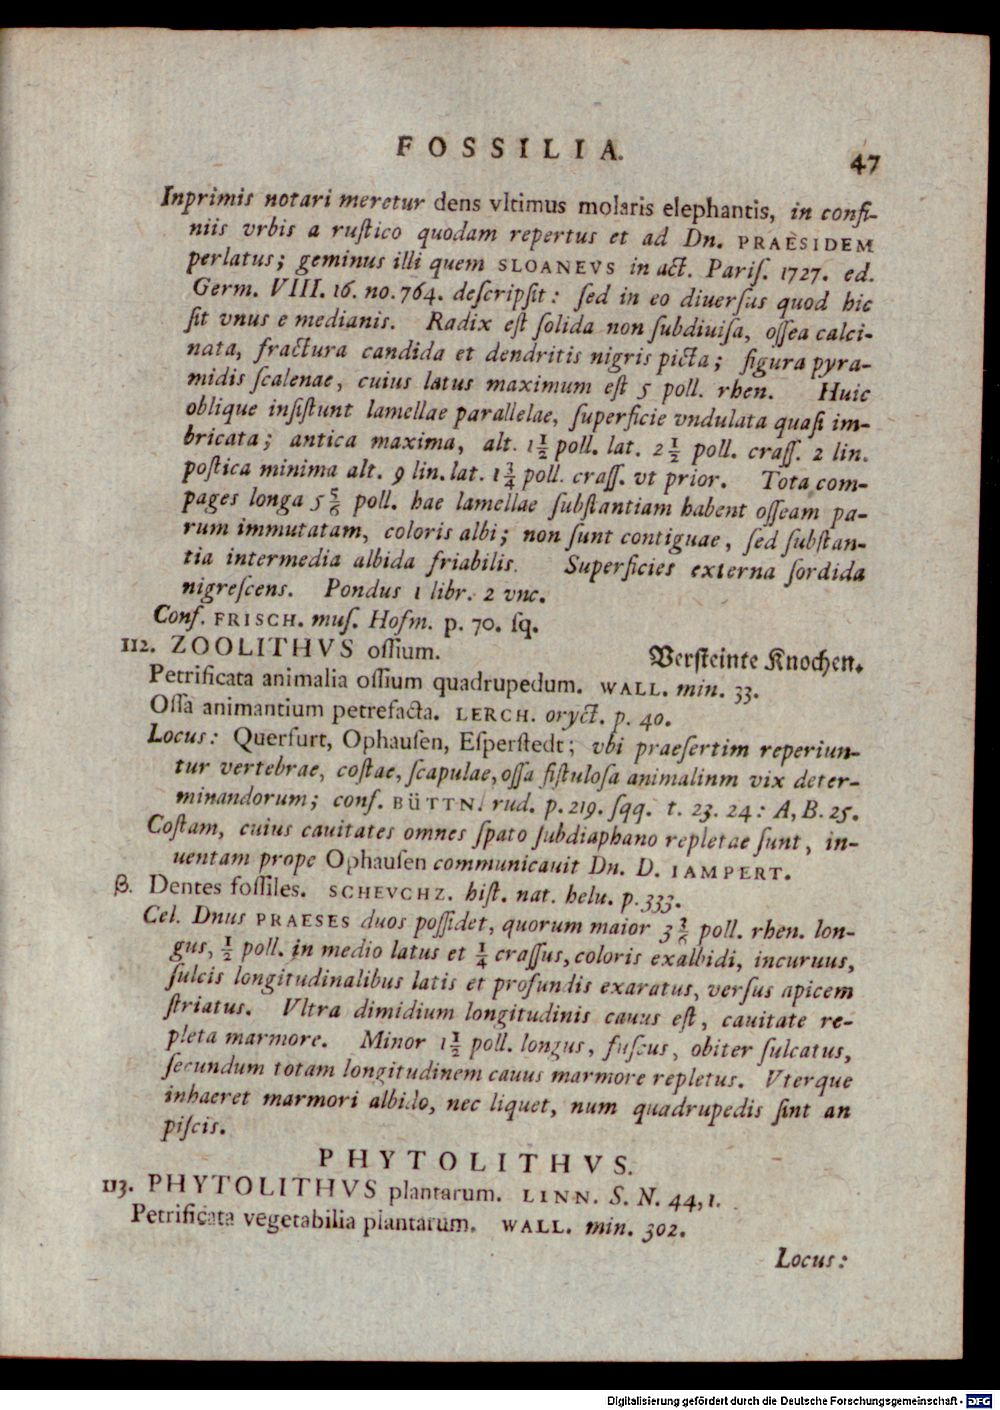 FOSSILIA.
47
Inprimis notari meretur dens vltimus molaris elephantis, in confi-
niis vrbis a ruſtico quodam repertus et ad Dn. PRAESIDEM
perlatus; geminus illi quem SLOANEVS in act. Pariſ. 1727. ed.
Germ. VIII. 16. no. 764. deſcripſit: ſed in eo diuerſus quod hic
ſit vnus e medianis. Radix eſt ſolida non ſubdiuiſa, oſſea calci-
nata, fractura candida et dendritis nigris picta; figura pyra-
midis ſcalenae, cuius latus maximum eſt 5 poll. rhen. Huic
oblique inſiſtunt lamellae parallelae, ſuperficie vndulata quaſi im-
bricata; antica maxima, alt. 1½ poll. lat. 2½ poll. craſſ. 2 lin.
poſtica minima alt. 9 lin. lat. 1¾ poll. craſſ. vt prior. Tota com-
pages longa 5⅚ poll. hae lamellae ſubſtantiam habent oſſeam pa-
rum immutatam, coloris albi; non ſunt contiguae, ſed ſubſtan-
tia intermedia albida friabilis. Superficies externa ſordida
nigreſcens. Pondus 1 libr. 2 vnc.
Conf. FRISCH. muſ. Hofm. p. 70. ſq.
112. ZOOLITHVS oſſium. Verſteinte Knochen.
Petrificata animalia oſſium quadrupedum. WALL. min. 33.
Oſſa animantium petrefacta. LERCH. oryct. p. 40.
Locus: Querfurt, Ophauſen, Eſperſtedt; vbi praeſertim reperiun-
tur vertebrae, coſtae, ſcapulae, oſſa fiſtuloſa animalinm vix deter-
minandorum; conf. BÜTTN. rud. p. 219. ſqq. t. 23. 24: A, B. 25.
Coſtam, cuius cauitates omnes ſpato ſubdiaphano repletae ſunt, in-
uentam prope Ophauſen communicauit Dn. D. IAMPERT.
β. Dentes foſſiles. SCHEVCHZ. hiſt. nat. helu. p. 333.
Cel. Dnus PRAESES duos poſſidet, quorum maior 3 2/6 poll. rhen. lon-
gus, ½ poll. in medio latus et ¼ craſſus, coloris exalbidi, incuruus,
ſulcis longitudinalibus latis et profundis exaratus, verſus apicem
ſtriatus. Vltra dimidium longitudinis cauus eſt, cauitate re-
pleta marmore. Minor 1½ poll. longus, fuſcus, obiter ſulcatus,
ſecundum totam longitudinem cauus marmore repletus. Vterque
inhaeret marmori albido, nec liquet, num quadrupedis ſint an
piſcis.
PHYTOLITHVS.
113. PHYTOLITHVS plantarum. LINN. S. N. 44, 1.
Petrificata vegetabilia plantarum. WALL. min. 302.
Locus:
Digitalisierung gefördert durch die Deutsche Forschungsgemeinschaft - DFG